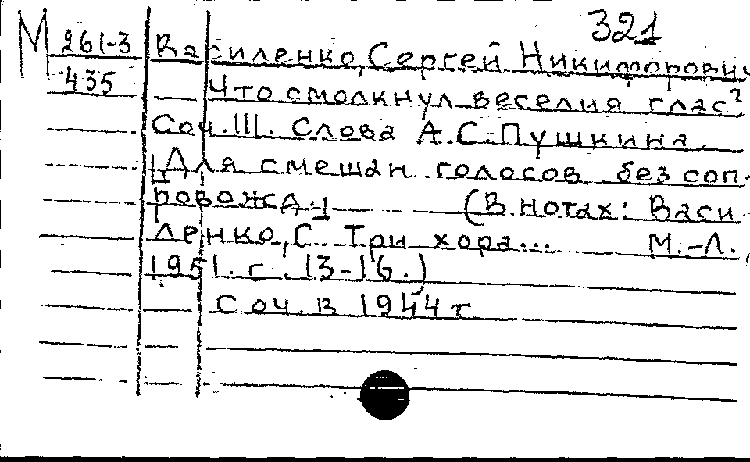 321
М 261-3 Василенко, Сергей Никифорович
435 Что смолкнул веселия глас?
Соч. III. Слова А.С. Пушкина.
[Для смешан. голосов без соп-
ровожд.] (В нотах: Васи-
ленко, С. Три хора... М.-Л.,
1951. с. 13-16.)
Соч. в 1944 г.